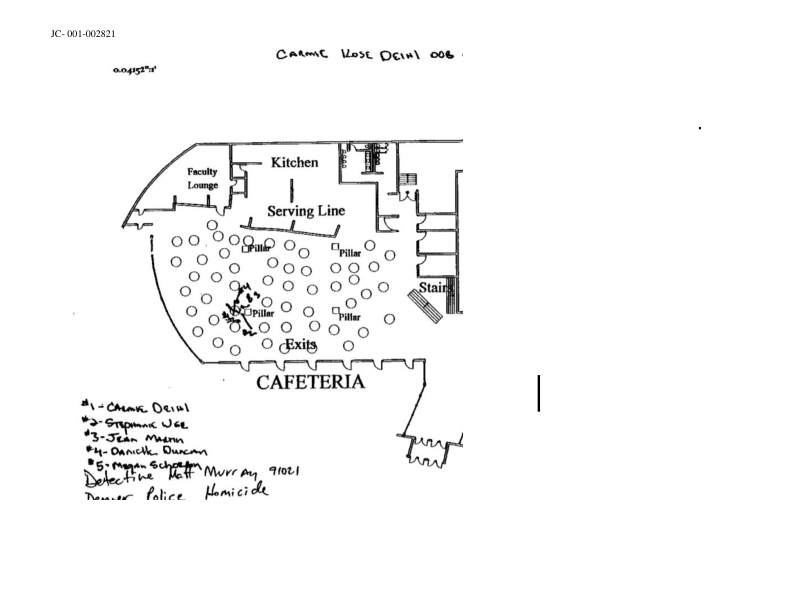 JC- 001-002821
CARMIE ROSE DEIHL DOB
0.04152":1'
Faculty
Lounge
Kitchen
Serving Line
Pillar
Pillar
Stairs
Pillar
Pillar
Exits
CAFETERIA
#1-CARMIE DEIHL
#2-STEPHANIE
#3-JEAN MARTIN
#4-DANIELLE DUNCAN
#5-MEGAN
Detective Matt Murray 91021
Denver Police Homicide